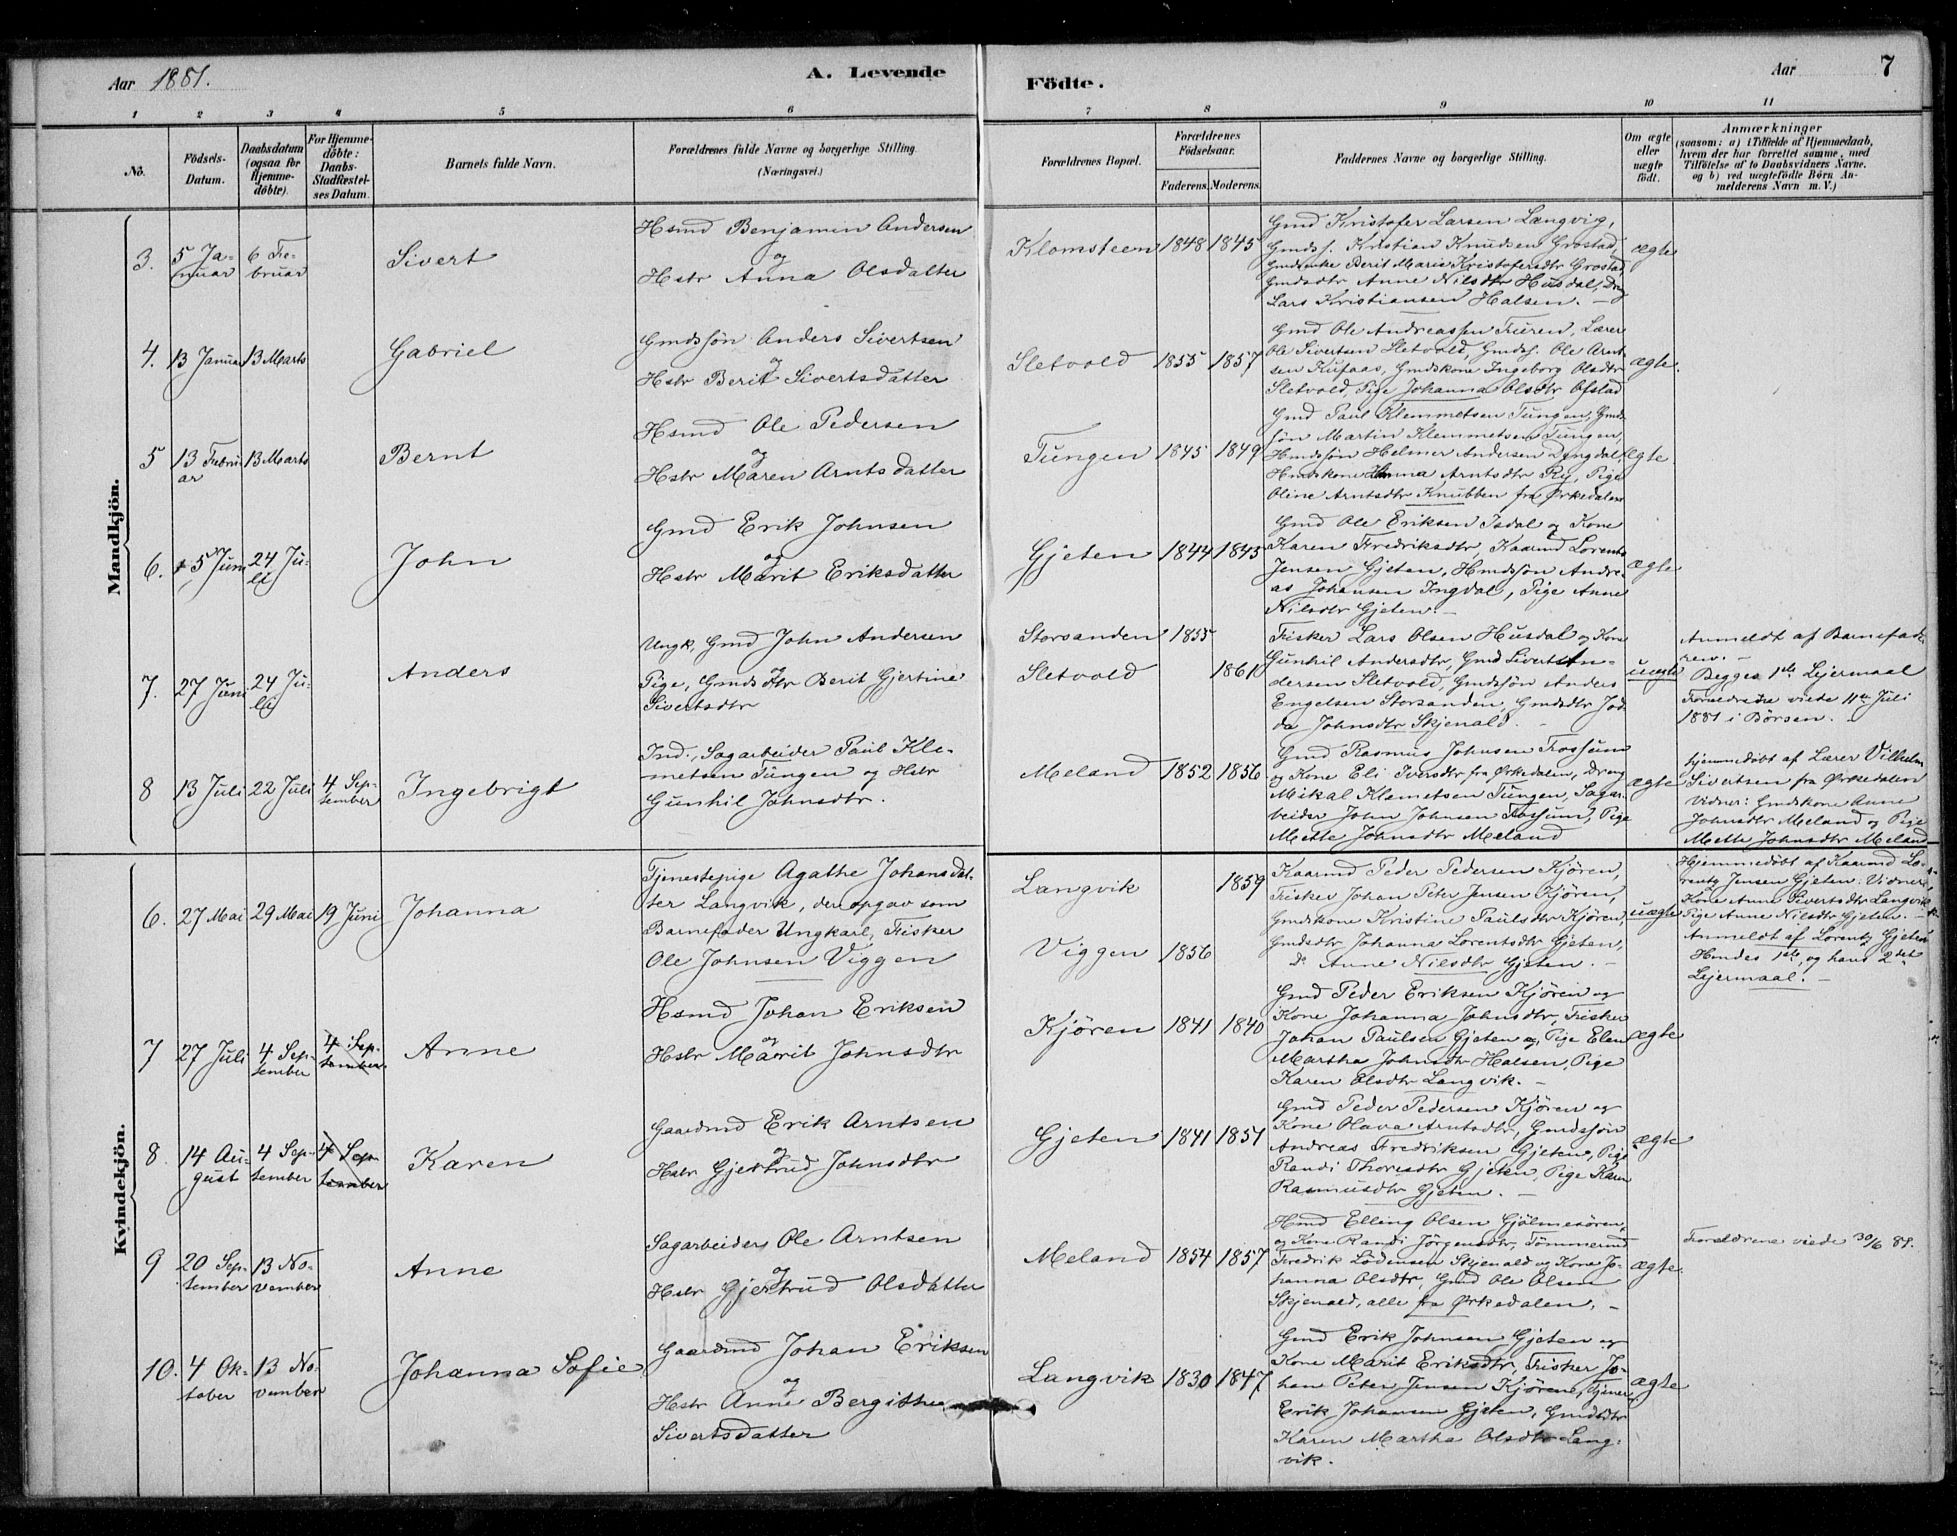 Aar 1881.
A. Levende
Födte.
Aar
7
1
2
3
4
5
6
7
8
9
10
11
No.
Födsels-
Datum.
Daabsdatum
(ogsaa for
Hjemme-
döbte).
For Hjemme-
döbte:
Daabs-
Stadfæstel-
ses Datum.
Barnets fulde Navn.
Forældrenes fulde Navne og borgerlige Stilling.
(Næringsvei.)
Forældrenes Bopæl.
Forældrenes
Födselsaar.
Faderens.
Moderens.
Faddernes Navne og borgerlige Stilling.
Om ægte
eller
uægte
födt.
Anmærkninger
(saasom: a) i Tilfælde af Hjemmedaab,
hvem der har forrettet samme, med
Tilföielse af to Daabsvidners Navne.
og b) ved uægtefödte Börn An-
melderens Navn m. V.)
Mandkjön.
3.
5 Ja-
nuar
6 Fe-
bruar
Sivert
Hsmd Benjamin Andersen
og
Hstr Anna Olsdatter
Klomsteen
1848
1845
Gmd Kristofer Larsen Langvig,
Gmds. Kristian Knudsen Grostad,
Gmdenke Berit Marie Kristofersdtr Grostad,
Gmdsdtr Anne Nilsdtr Husdal, Drg
Lars Kristiansen Halsen. —
ægte
4.
13 Januar
13 Marts
Gabriel
Gmdssön Anders Sivertsen
og
Hstr Berit Sivertsdatter
Sletvold
1855
1857
Gmd Ole Andreassen Furen, Lærer
Ole Sivertsen Sletvold, Gmdss. Ole Arnt
sen Kufaas, Gmdskone Ingeborg Olsdtr
Sletvold, Pige Johanna Olsdtr Ofstad
ægte.
5
13 Febru
ar
13 Marts
Bernt
Hsmd Ole Pedersen
og
Hstr Maren Arntsdatter
Tungen
1845
1849
Gmd Paul Klemmetsen Tungen, Gmds
søn Martin Klemmetsen Tungen,
Hmdssøn Helmer Andersen Lyngdal,
Hmdskone Anna Arntsdtr Ry, Pige
Oline Arntsdtr Knubben fra Ørkedalen
ægte
6.
5 Juni
24 Ju-
lij
John
Gmd Erik Johnsen
og
Hstr Marit Eriksdatter
Gjeten
1844
1843
Gmd Ole Eriksen Isdal og Kone
Karen Fredriksdtr, Kaarmd Lorents
Jensen Gjeten, Hmdssøn Andre-
as Johansen Ingdal, Pige Anne
Nilsdtr Gjeten. —
ægte
7.
27 Juni
24 Ju-
lij
Anders
Ungk, Gmd John Andersen
og
Pige, Gmdsdtr Berit Gjertine
Sivertsdtr
Storsanden
1855
Sletvold
1861
Fisker Lars Olsen Husdal og Kone
Gunhil Andersdtr, Gmd Sivert An-
dersen Sletvold, Gmdssøn Anders
Engelsen Storsanden, Gmdsdtr Jod-
da Johnsdtr Skjenald. —
uægte
Anmeldt af Barnefade
ren. —
Begges 1ste Lejermaal
Foreldrene viete 11te Juli
1881 i Börsen.
8
13 Juli
22 Juli
4 Sep-
tember
Ingebrigt
Ind., Sagarbeider Paul Kle-
metsen Tungen og Hstr
Gunhil Johnsdtr.
Meland
1852
1856
Gmd Rasmus Johnsen Fossum
og Kone Eli Iversdtr fra Ørkedalen, Dreng
Mikal Klemetsen Tungen, Sagar-
beider John Johnsen Fossum, Pige
Mette Johnsdtr Meland
ægte
Hjemmedøbt af Lærer Vilhelm
Sivertsen fra Ørkedalen
Vidner: Gmdskone Anne
Johnsdtr Meland og Pige
Mette Johnsdtr Meland
Kvindekjön.
6.
27 Mai
29 Mai
19 Juni
Johanna
Tjenestepige Agathe Johansdat-
ter Langvik, der opgav som
Barnefader Ungkarl, Fisker
Ole Johnsen Viggen
Langvik
1859
Viggen
1856
Kaarmd Peder Pedersen Kjören,
Fisker Johan Peter Jensen Kjören,
Gmdskone Kristine Paulsdtr Kjören,
Gmdsdtr Johanna Lorentsdtr Gjeten,
Do Anne Nilsdtr Gjeten. —
uægte
Hjemmedøbt af Kaarmd Lo-
rentz Jensen Gjeten: Vidner:
Kone Anne Sivertsdtr Langvik
Pige Anne Nilsdtr Gjeten. —
Anmeldt af Lorentz Gjeten
Hendes 1ste, og hans 2det
Lejermaal. —
7
27 Juli
4 Sep-
tember
4 Sep-
tember
Anne
Hsmd Johan Eriksen
og
Hstr Marit Johnsdtr
Kjören
1841
1840
Gmd Peder Eriksen Kjören og
Kone Johanna Johnsdtr, Fisker
Johan Paulsen Gjeten og Pige Elen
Martha Johnsdtr Halsen, Pige
Karen Olsdtr Langvik. —
ægte
8.
14 Au-
gust
4 Sep-
tember
4 Sep-
tember
Karen
Gaardmd Erik Arntsen
og
Hstr Gjertrud Johnsdtr
Gjeten
1841
1851
Gmd Peder Pedersen Kjören og
Kone Olava Arntsdtr, Gmdssøn
Andreas Fredriksen Gjeten, Pige
Randi Thoresdtr Gjeten, Pige Karen
Rasmusdtr Gjeten. —
ægte
9
20 Sep-
tember
13 No-
vember
Anne
Sagarbeider Ole Arntsen
og
Hstr Gjertrud Olsdatter
Meland
1854
1857
Hmd Elling Olsen Gjölmesören,
og Kone Randi Jörgensdtr, Tömmermd
Fredrik Lödensen Skjenald og Kone Jo-
hanna Olsdtr, Gmd Ole Olsen
Skjenald, alle fra Ørkedalen. —
ægte.
Foreldrene viede 30/6 81.
10.
4 Ok-
tober
13 No-
vember
Johanna Sofie
Gaardmd Johan Eriksen
og
Hstr Anne Bergithe
Sivertsdatter
Langvik
1830
1847
Gmd Erik Johnsen Gjeten og
Kone Marit Eriksdtr, Fisker Jo-
han Peter Jensen Kjören, Tjener
Erik Johansen Gjeten, Gmdsdtr
Karen Martha Olsdtr Lang-
vik.
ægte